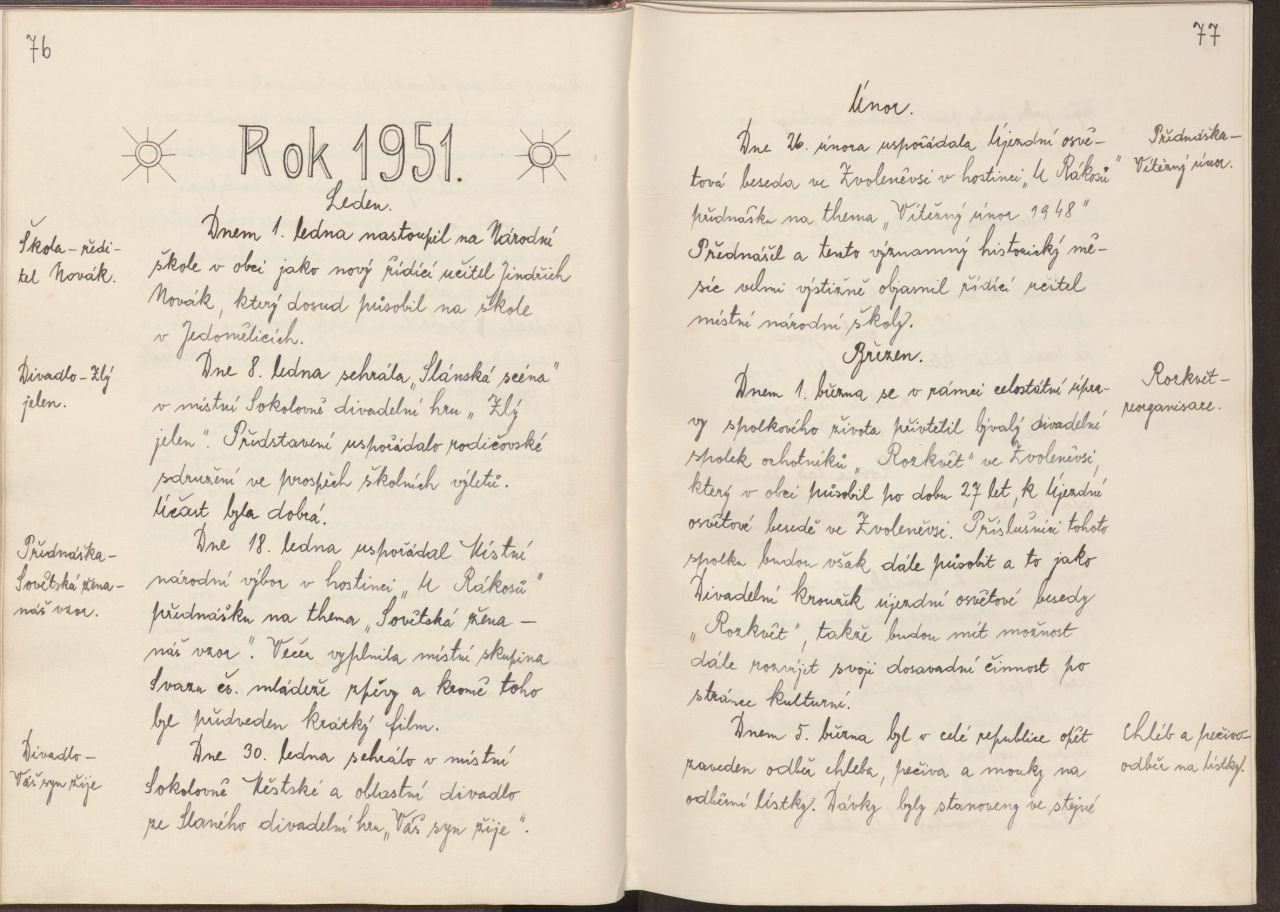 76
Rok 1951.
Leden.
Škola – ředi-
tel Novák.
Dnem 1. ledna nastoupil na Národní
škole v obci jako nový řídící učitel Jindřich
Novák, který dosud působil na škole
v Jedomělicích.
Divadlo – Zlý
jelen.
Dne 8. ledna sehrála „Slánská scéna"
v místní Sokolovně divadelní hru „Zlý
jelen". Představení uspořádalo rodičovské
sdružení ve prospěch školních výletů.
Účast byla dobrá.
Přednáška –
Sovětská žena –
náš vzor.
Dne 18. ledna uspořádal Místní
národní výbor v hostinci „U Rákosů"
přednášku na thema „Sovětská žena –
náš vzor". Večer vyplnila místní skupina
Svazu čs. mládeže zpěvy a kromě toho
byl předveden krátký film.
Divadlo –
Váš syn žije
Dne 30. ledna sehrálo v místní
Sokolovně Městské a oblastní divadlo
ze Slaného divadelní hru „Váš syn žije".
77
Únor.
Přednáška –
Vítězný únor.
Dne 26. února uspořádala Újezdní osvě-
tová beseda ve Zvoleněvsi v hostinci „U Rákosů"
přednášku na thema „Vítězný únor 1948"
Přednášel a tento významný historický mě-
síc velmi výstižně objasnil řídící učitel
místní národní školy.
Březen.
Rozkvět –
reorganisace.
Dnem 1. března se v rámci celostátní úpra-
vy spolkového života přivtělil bývalý divadelní
spolek ochotníků „Rozkvět" ve Zvoleněvsi,
který v obci působil po dobu 27 let, k Újezdní
osvětové besedě ve Zvoleněvsi. Příslušníci tohoto
spolku budou však dále působit a to jako
Divadelní kroužek újezdní osvětové besedy
„Rozkvět", takže budou mít možnost
dále rozvíjet svoji dosavadní činnost po
stránce kulturní.
Chléb a pečivo –
odběr na lístky.
Dnem 5. března byl v celé republice opět
zaveden odběr chleba, pečiva a mouky na
odběrní lístky. Dávky byly stanoveny ve stejné